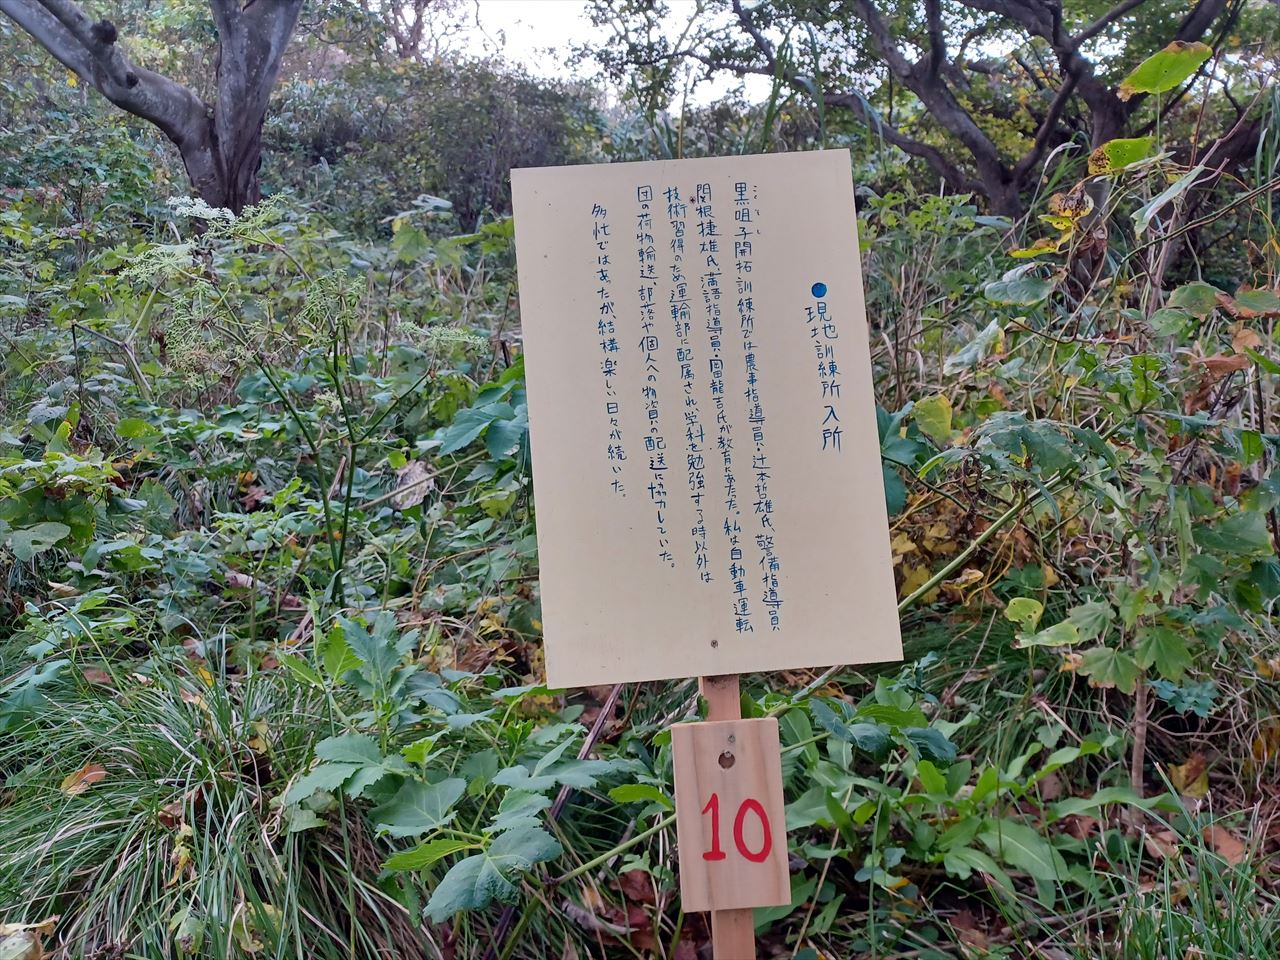 ●現地訓練所入所
こくそし
黒咀子開拓訓練所では農事指導員・辻本哲雄氏、警備指導員
関根捷雄氏、満語指導員・岡龍吉氏が教育にあたった。私は自動車運転
技術習得のため運輸部に配属され、学科を勉強する時以外は
団の荷物輸送、部落や個人への物資の配送に協力していた。
多忙ではあったが、結構楽しい日々が続いた。
10